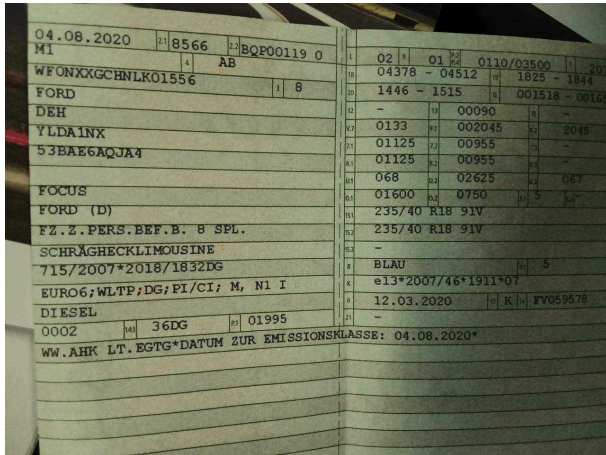 04.08.2020 2.1 8566 2.2 BQP00119 0
M1 4 AB
WF0NXXGCHNLK01556 3 8
FORD
DEH
YLDA1NX
53BAE6AQJA4
FOCUS
FORD (D)
FZ.Z.PERS.BEF.B. 8 SPL.
SCHRÄGHECKLIMOUSINE
715/2007*2018/1832DG
EURO6;WLTP;DG;PI/CI; M, N1 I
DIESEL
0002 14.1 36DG P.1 01995
WW.AHK LT.EGTG*DATUM ZUR EMISSIONSKLASSE: 04.08.2020*
L 02 9 01 P.2 P.4 0110/03500 T
18 04378 - 04512 19 1825 - 1844
20 1446 - 1515 G 001518 -
12 - 13 00090 Q -
V.7 0133 F.1 002045 F.2 2045
7.1 01125 7.2 00955 7.3 -
8.1 01125 8.2 00955 8.3 -
U.1 068 U.2 02625 U.3 067
O.1 01600 O.2 0750 S.1 5 S.2 -
15.1 235/40 R18 91V
15.2 235/40 R18 91V
15.3 -
R BLAU 11 5
K e13*2007/46*1911*07
6 12.03.2020 17 K 16 FV059578
21 -